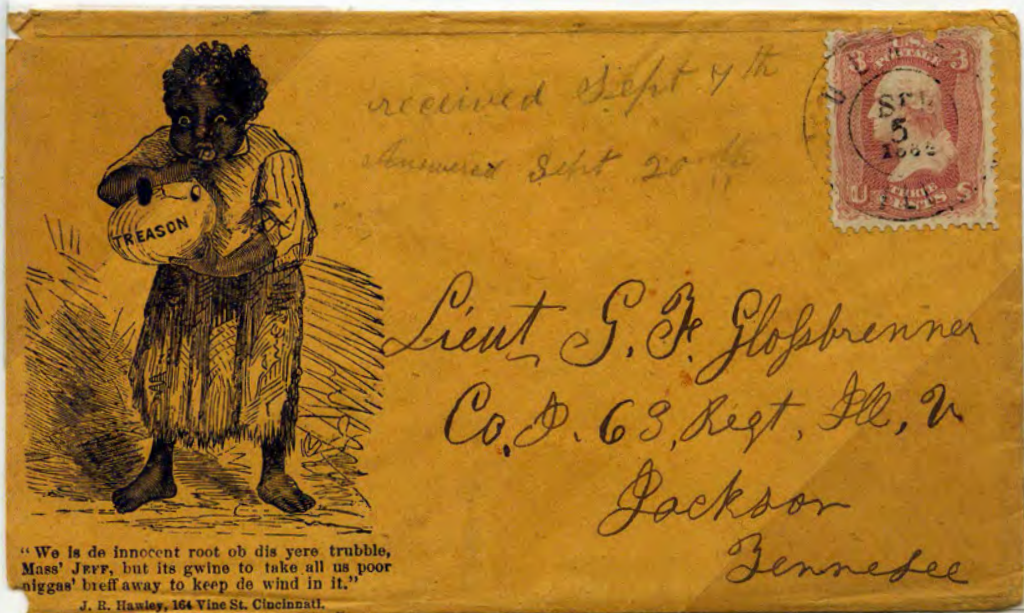 received Sept 7th
Answered Sept 20th
3 3
U S
SEP
5
ILL
TREASON
Lieut G. F. Glossbrenner
Co. D. 63, Regt, Ill, V.
Jackson
Tennesee
"We is de innocent root ob dis yere trubble,
Mass' JEFF, but its gwine to take all us poor
niggas' breff away to keep de wind in it."
J. R. Hawley, 164 Vine St. Cincinnati.